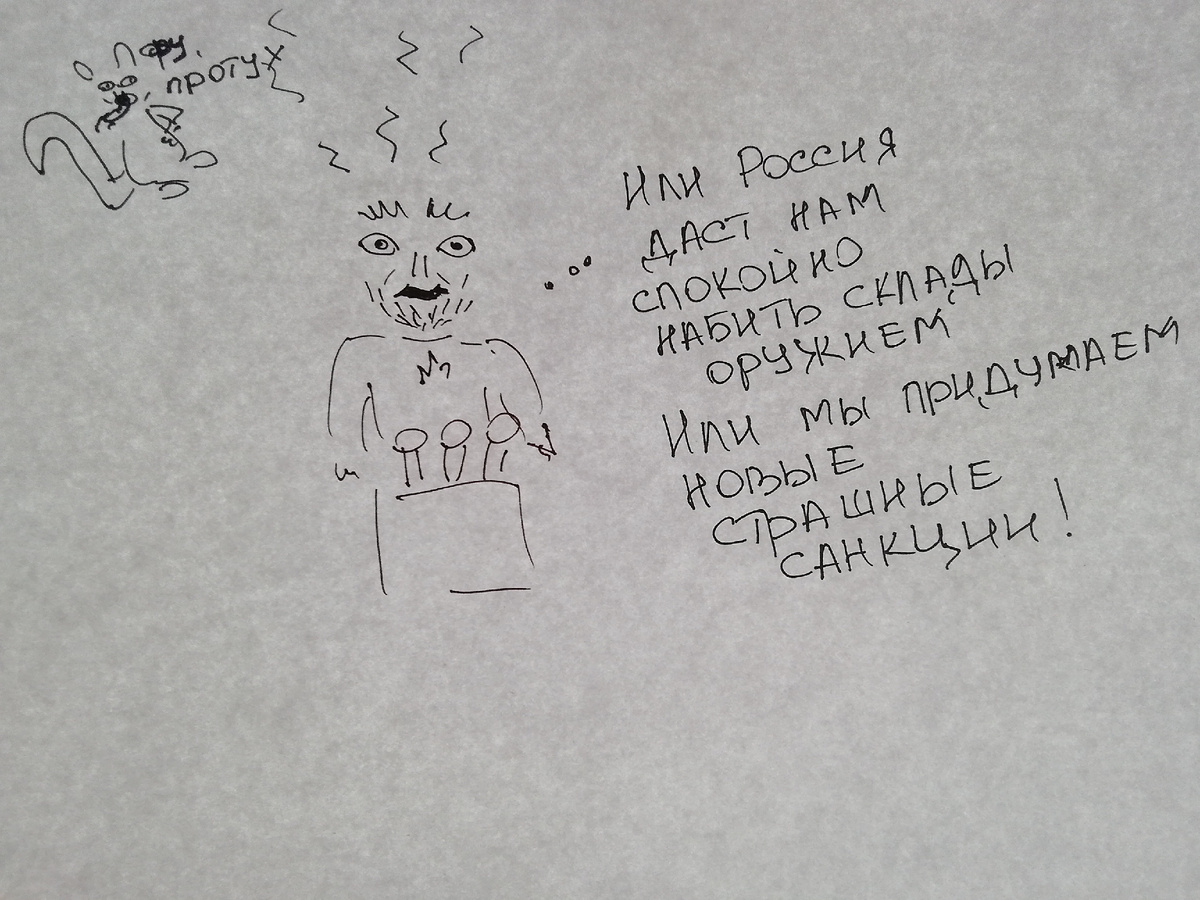 Пфу,
протух
Или Россия
даст нам
спокойно
набить склады
оружием
Или мы придумаем
новые
страшные
санкции!